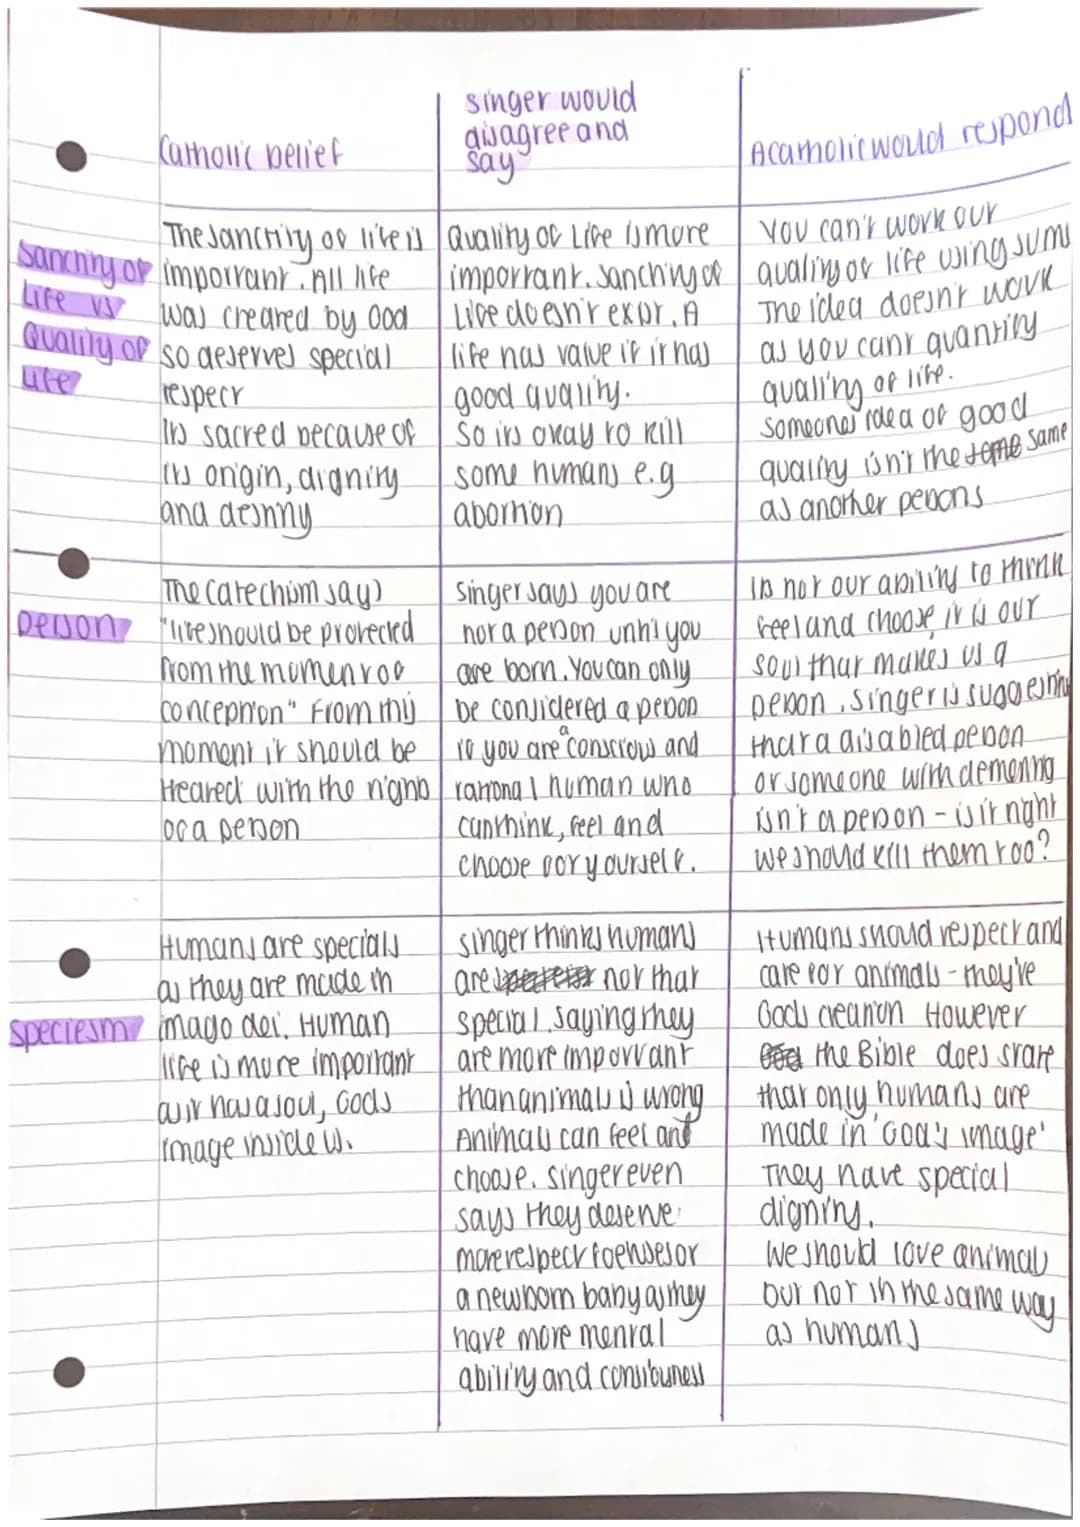 Catholic belief
singer would
disagree and
say
A catholic would respond
Sanctity of
Life vs
Quality of
life
The sanctity of life is
important. All life
was created by God
so deserves special
respect
Its sacred because of
its origin, dignity
and destiny
Quality of Life is more
important. Sanctity of
Life doesn't exist. A
life has value if it has
good quality.
So its okay to kill
some humans e.g
abortion
You can't work our
quality of life using sums
The idea doesn't work
as you cant quantify
quality of life.
someones idea of good
quality isn't the same
as another persons
person
The Catechism says
"life should be protected
from the moment of
conception" From this
moment it should be
treated with the rights
of a person
Singer says you are
not a person until you
are born. You can only
be considered a person
if you are a conscious and
rational human who
can think, feel and
choose for yourself.
Its not our ability to think
feel and choose, it is our
soul that makes us a
person. Singer is suggesting
that a disabled person
or someone with dementia
isn't a person - is it right
we should kill them too?
speciesm
Humans are specials
as they are made in
imago dei. Human
life is more important
as it has a soul, Gods
image inside us.
singer thinks humans
are not that
special. saying they
are more important
than animals is wrong
Animals can feel and
choose. singer even
says they deserve
more respect
a newborn baby as they
have more mental
ability and
Humans should respect and
care for animals - they've
Gods creation However
the Bible does state
that only humans are
made in 'God's image'
They have special
dignity.
We should love animals
but not in the same way
as humans